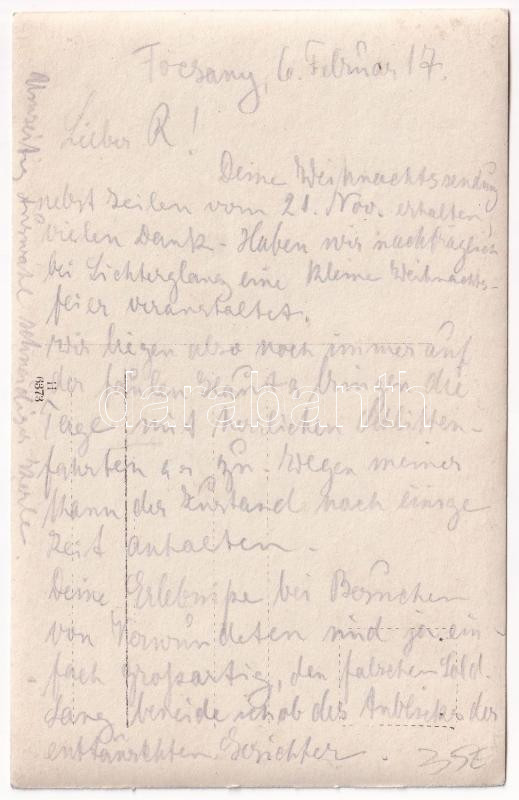 Focsany, 6. Februar 17.
Lieber R!
Deine Weihnachtssendung
nebst Zeilen vom 21. Nov. erhalten,
vielen Dank - Haben wir nachträglich
bei Lichterglanz eine kleine Weihnachts-
feier veranstaltet.
Wir liegen also noch immer auf
der faulen Haut & bringen die
Tage mit herrlichen Schlitten-
fahrten zu - Wegen meiner
kann der Zustand noch einige
Zeit anhalten -
Deine Erlebnisse bei Besuchen
von Verwundeten sind ja ein-
fach großartig, den falschen Sold
beneide ich ob des Anblickes der
enttäuschten Gesichter.
Umseitig Auswahl schneidiger Kerle.
darabanth